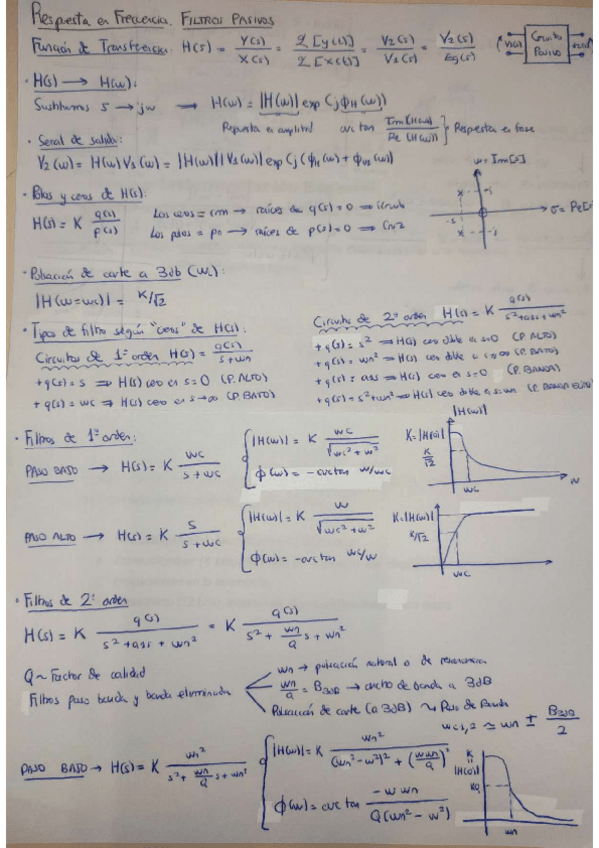 Respuesta en Frecuencia. FILTROS PASIVOS
Función de Transferencia: H(s) = Y(s)/X(s) = ℒ[y(t)]/ℒ[x(t)] = V2(s)/V1(s) = V2(s)/Eg(s)
V1(s) Circuito Pasivo V2(s)
· H(s) → H(ω):
Sustituimos s → jω → H(ω) = |H(ω)| exp(jϕH(ω))
Respuesta en amplitud arctan Im(H(ω))/Re(H(ω)) } Respuesta en fase
· Señal de salida:
V2(ω) = H(ω)V1(ω) = |H(ω)||V1(ω)| exp(j(ϕH(ω) + ϕV1(ω))
ω = Im[s]
· Polos y ceros de H(s):
H(s) = K q(s)/p(s)
Los ceros = crm → raíces de q(s)=0 ⇒
Los polos = pn → raíces de p(s)=0 ⇒
σ = Re[s]
· Pulsación de corte a 3db (ωc):
|H(ω=ωc)| = K/√2
· Tipos de filtro según "ceros" de H(s):
Circuitos de 1º orden H(s) = q(s)/s+ωn
+ q(s) = s ⇒ H(s) cero en s=0 (P. ALTO)
+ q(s) = ωc ⇒ H(s) cero en s→∞ (P. BAJO)
Circuitos de 2º orden H(s) = K q(s)/s²+a1s+ωn²
+ q(s) = s² ⇒ H(s) cero doble a s=0 (P. ALTO)
+ q(s) = ωn² ⇒ H(s) cero doble a s→∞ (P. BAJO)
+ q(s) = a1s ⇒ H(s) cero en s=0 (P. BANDA)
+ q(s) = s²+ωn² ⇒ H(s) cero doble a s=ωn (P. BANDA ELIM)
· Filtros de 1º orden:
PASO BAJO → H(s) = K ωc/s+ωc { |H(ω)| = K ωc/√ωc²+ω²
ϕ(ω) = -arctan ω/ωc
|H(ω)|
K=|H(0)|
K/√2
ωc
ω
PASO ALTO → H(s) = K s/s+ωc { |H(ω)| = K ω/√ωc²+ω²
ϕ(ω) = -arctan ωc/ω
K=|H(ω)|
K/√2
ωc
· Filtros de 2º orden
H(s) = K q(s)/s²+a1s+ωn² = K q(s)/s²+ωn/Q s+ωn²
Q ~ Factor de calidad
Filtros paso banda y banda eliminada
ωn → pulsación natural o de resonancia
ωn/Q = B3dB → ancho de banda a 3dB
Pulsación de corte (a 3dB) ~ Paso de Banda
ωc1,2 ≃ ωn ± B3dB/2
PASO BAJO → H(s) = K ωn²/s²+ωn/Q s+ωn² { |H(ω)| = K ωn²/(ωn²-ω²)²+(ωωn/Q)²
ϕ(ω) = arctan -ωωn/Q(ωn²-ω²)
K
|H(0)|
KQ
ωn